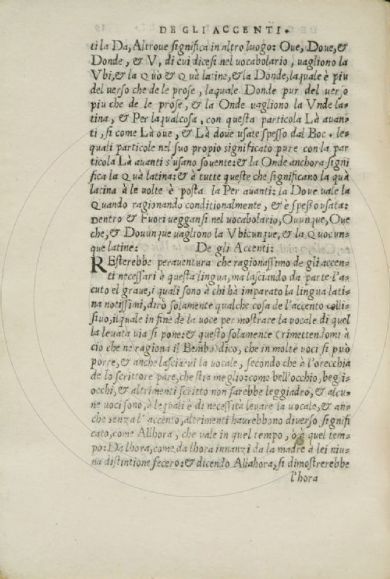 DE GLI ACCENTI.
ti la Da, Altroue significa in altro luogo: Oue, Doue, &
Donde, & V, di cui dicesi nel uocabolario, uagliono la
Vbi, & la Quò & Quà latine, & la Donde, laquale è piu
del uerso che de le prose, laquale Donde pur del uerso
piu che de le prose, & la Onde uagliono la Vnde la-
tina, & Per laqualcosa, con questa particola Là auan-
ti, si come Là oue, & Là doue usate spesso dal Boc. le-
quali particole nel suo proprio significato pure con la par
ticola Là auanti s'usano souente: & la Onde anchora signi
fica la Quà latina: & à tutte queste che significano la quà
latina à le uolte è posta la Per auanti: la Doue uale la
Quando ragionando conditionalmente, & è spesso usata:
Dentro & Fuori ueggansi nel uocabolario, Ouunque, Oue
che, & Douunque uagliono la Vbicunque, & la Quocun-
que latine: De gli Accenti:
REsterebbe perauentura che ragionassimo de gli accen-
ti necessari è questa lingua, ma lasciando da parte l'a-
cuto el graue, i quali sono à chi hà imparato la lingua lati-
na notissimi, dirò solamente qualche cosa de l'accento colli-
siuo, ilquale in fine de la uoce per mostrare la uocale di quel
la leuata uia si pone: & questo solamente
ciò che ne ragiona il Bembo dico, che in molte uoci si può
porre, & anche lasciarui la uocale, secondo che à l'orecchia
de lo scrittore pare, che stia meglio: come bell'occhio, begli
occhi, & altrimenti scritto non sarebbe leggiadro, & alcu-
ne uoci sono, à lequali è di necessità leuare la uocale, & an-
che senza l'accento, altrimenti haurebbono diuerso signifi
cato, come Allhora, che uale in quel tempo, ò à quel tem-
po: Da lhora, come da lhora innanzi da la madre à lei niu-
na distintione fecero: & dicendo Allahora, si dimostrerebbe
l'hora